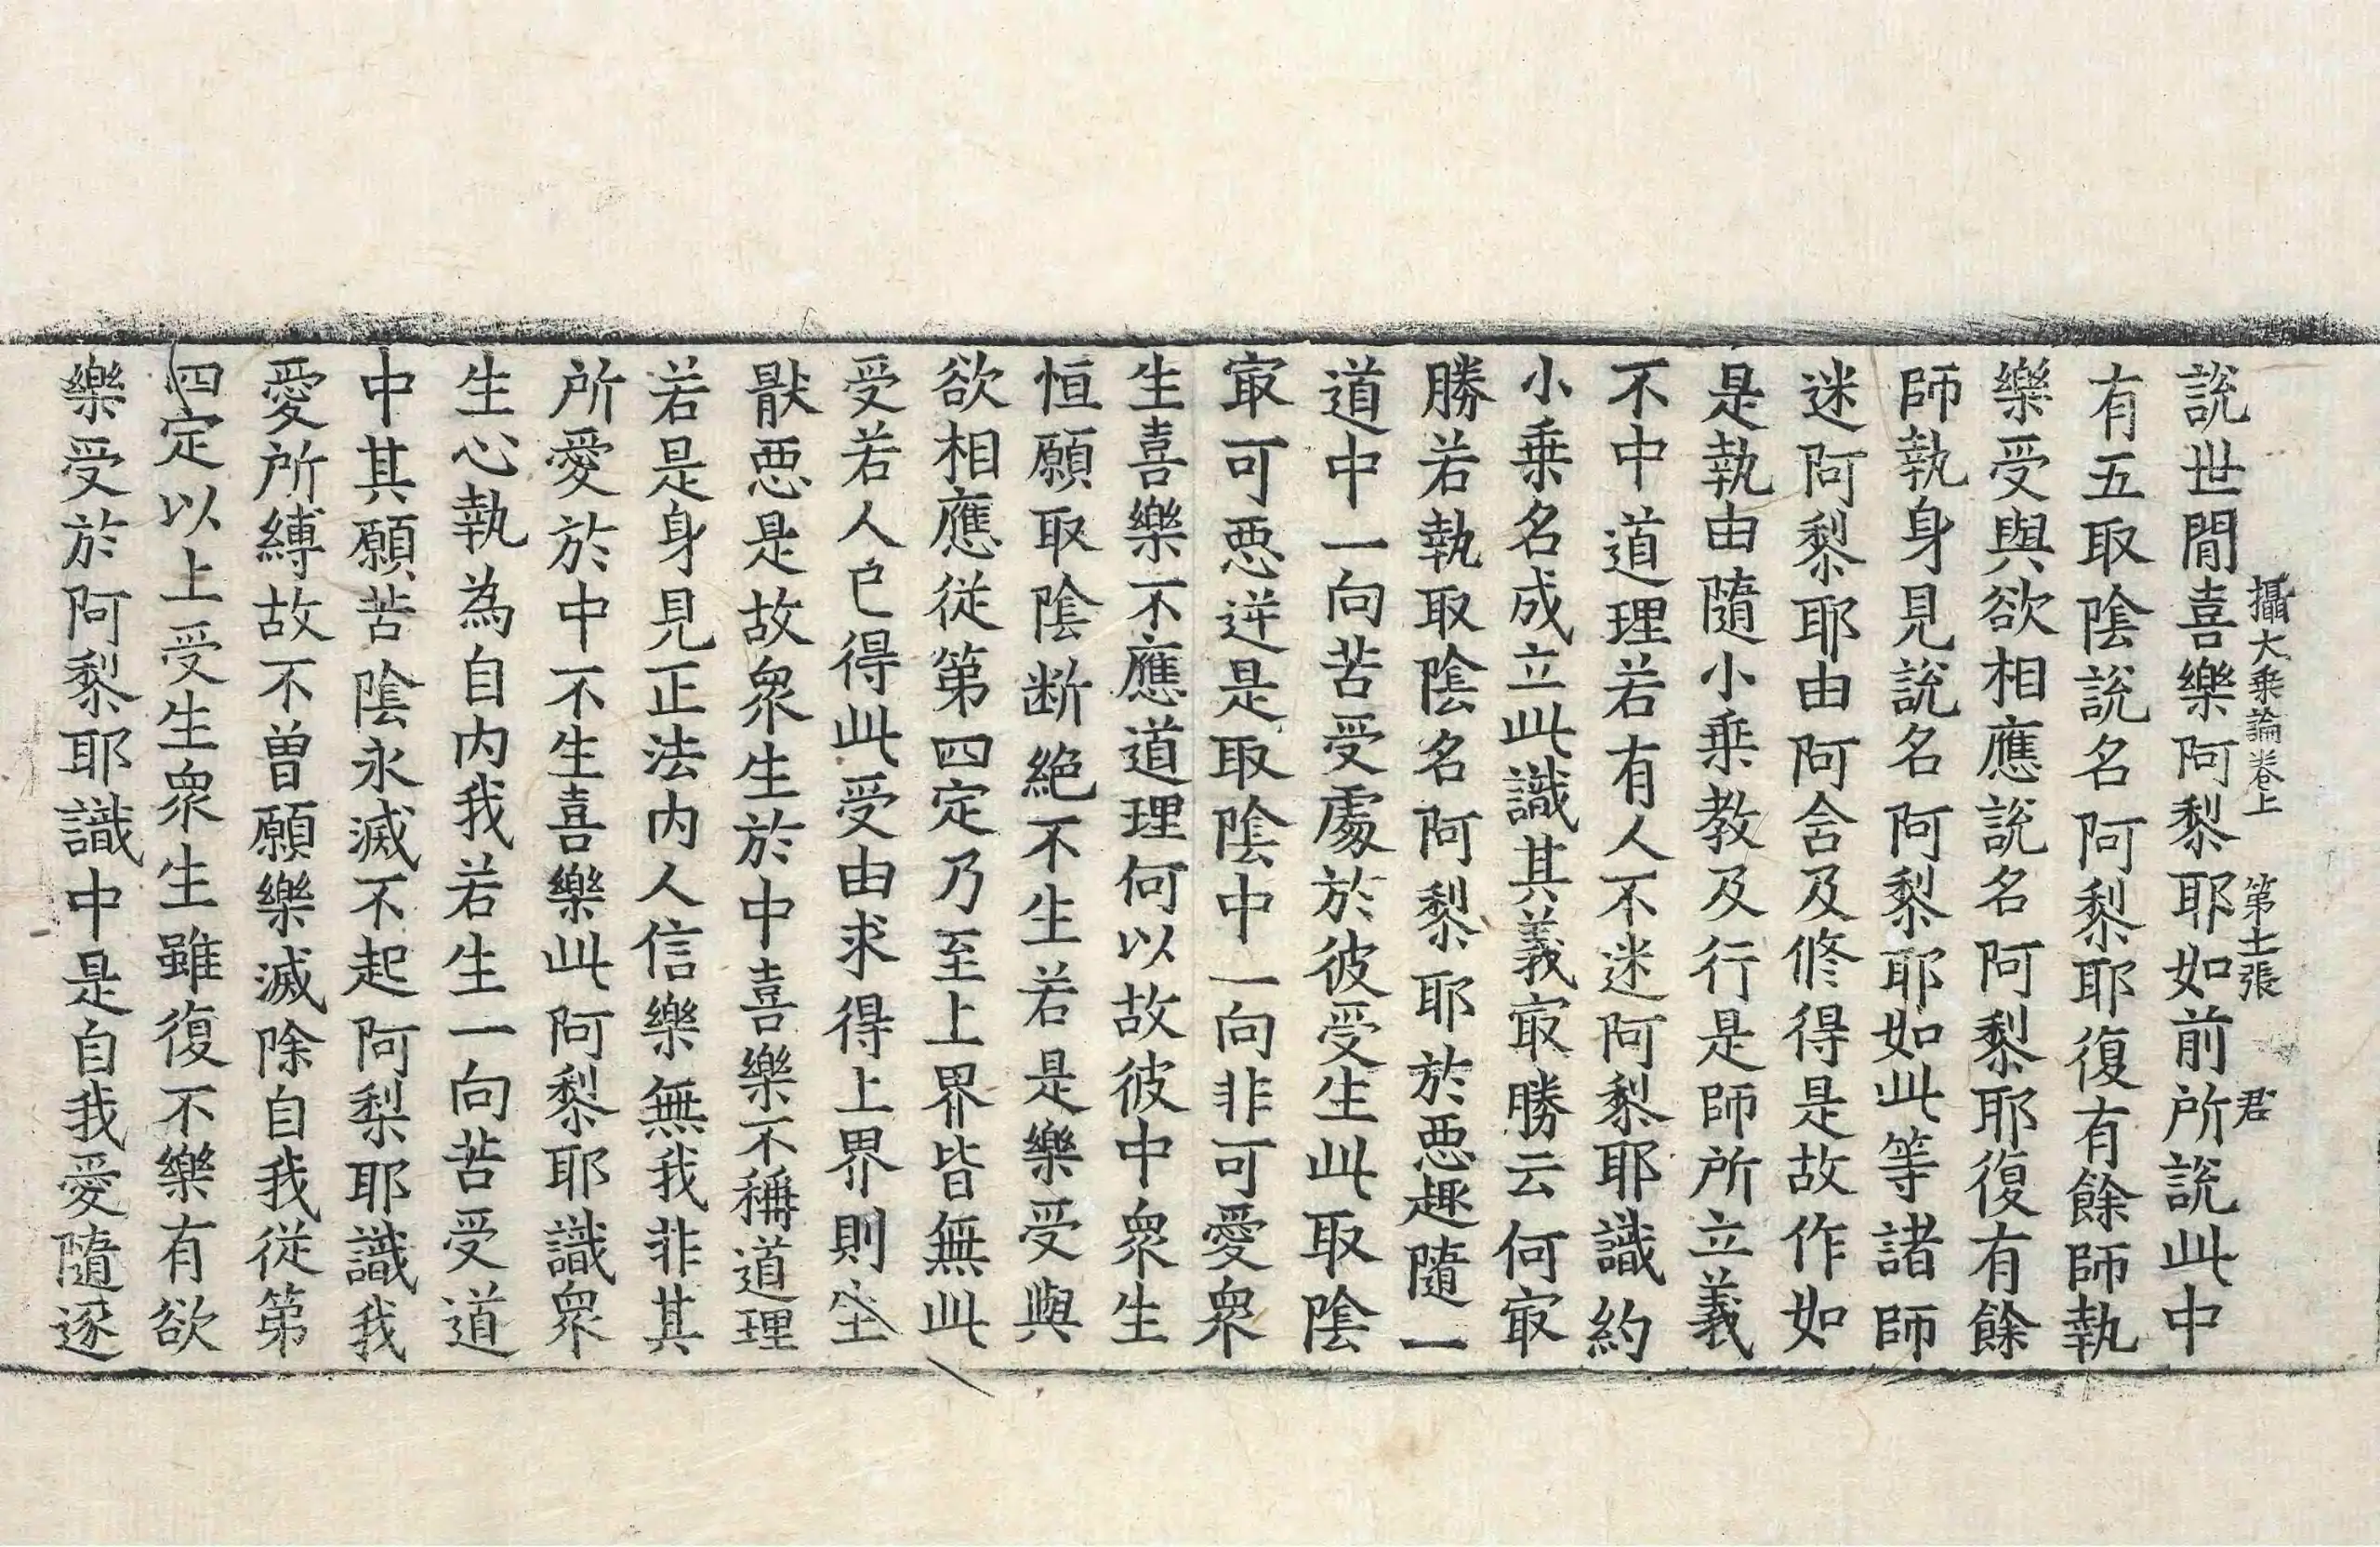 攝大乗論卷上　第十二張　君
說世閒喜樂阿黎耶如前所說此中
有五取陰說名阿黎耶復有餘師執
樂受與欲相應說名阿黎耶復有餘
師執身見說名阿黎耶如此等諸師
迷阿黎耶由阿含及修得是故作如
是執由隨小乗教及行是師所立義
不中道理若有人不迷阿黎耶識約
小乗名成立此識其義㝡勝云何㝡
勝若執取陰名阿黎耶於惡趣隨一
道中一向苦受處於彼受生此取陰
㝡可惡逆是取陰中一向非可愛衆
生喜樂不應道理何以故彼中衆生
恒願取陰断絕不生若是樂受與
欲相應從第四定乃至上界皆無此
受若人已得此受由求得上界則生
猒惡是故衆生於中喜樂不稱道理
若是身見正法內人信樂無我非其
所愛於中不生喜樂此阿黎耶識衆
生心執為自內我若生一向苦受道
中其願苦陰永滅不起阿梨耶識我
愛所縛故不曾願樂滅除自我從第
四定以上受生衆生雖復不樂有欲
樂受於阿黎耶識中是自我愛隨逐